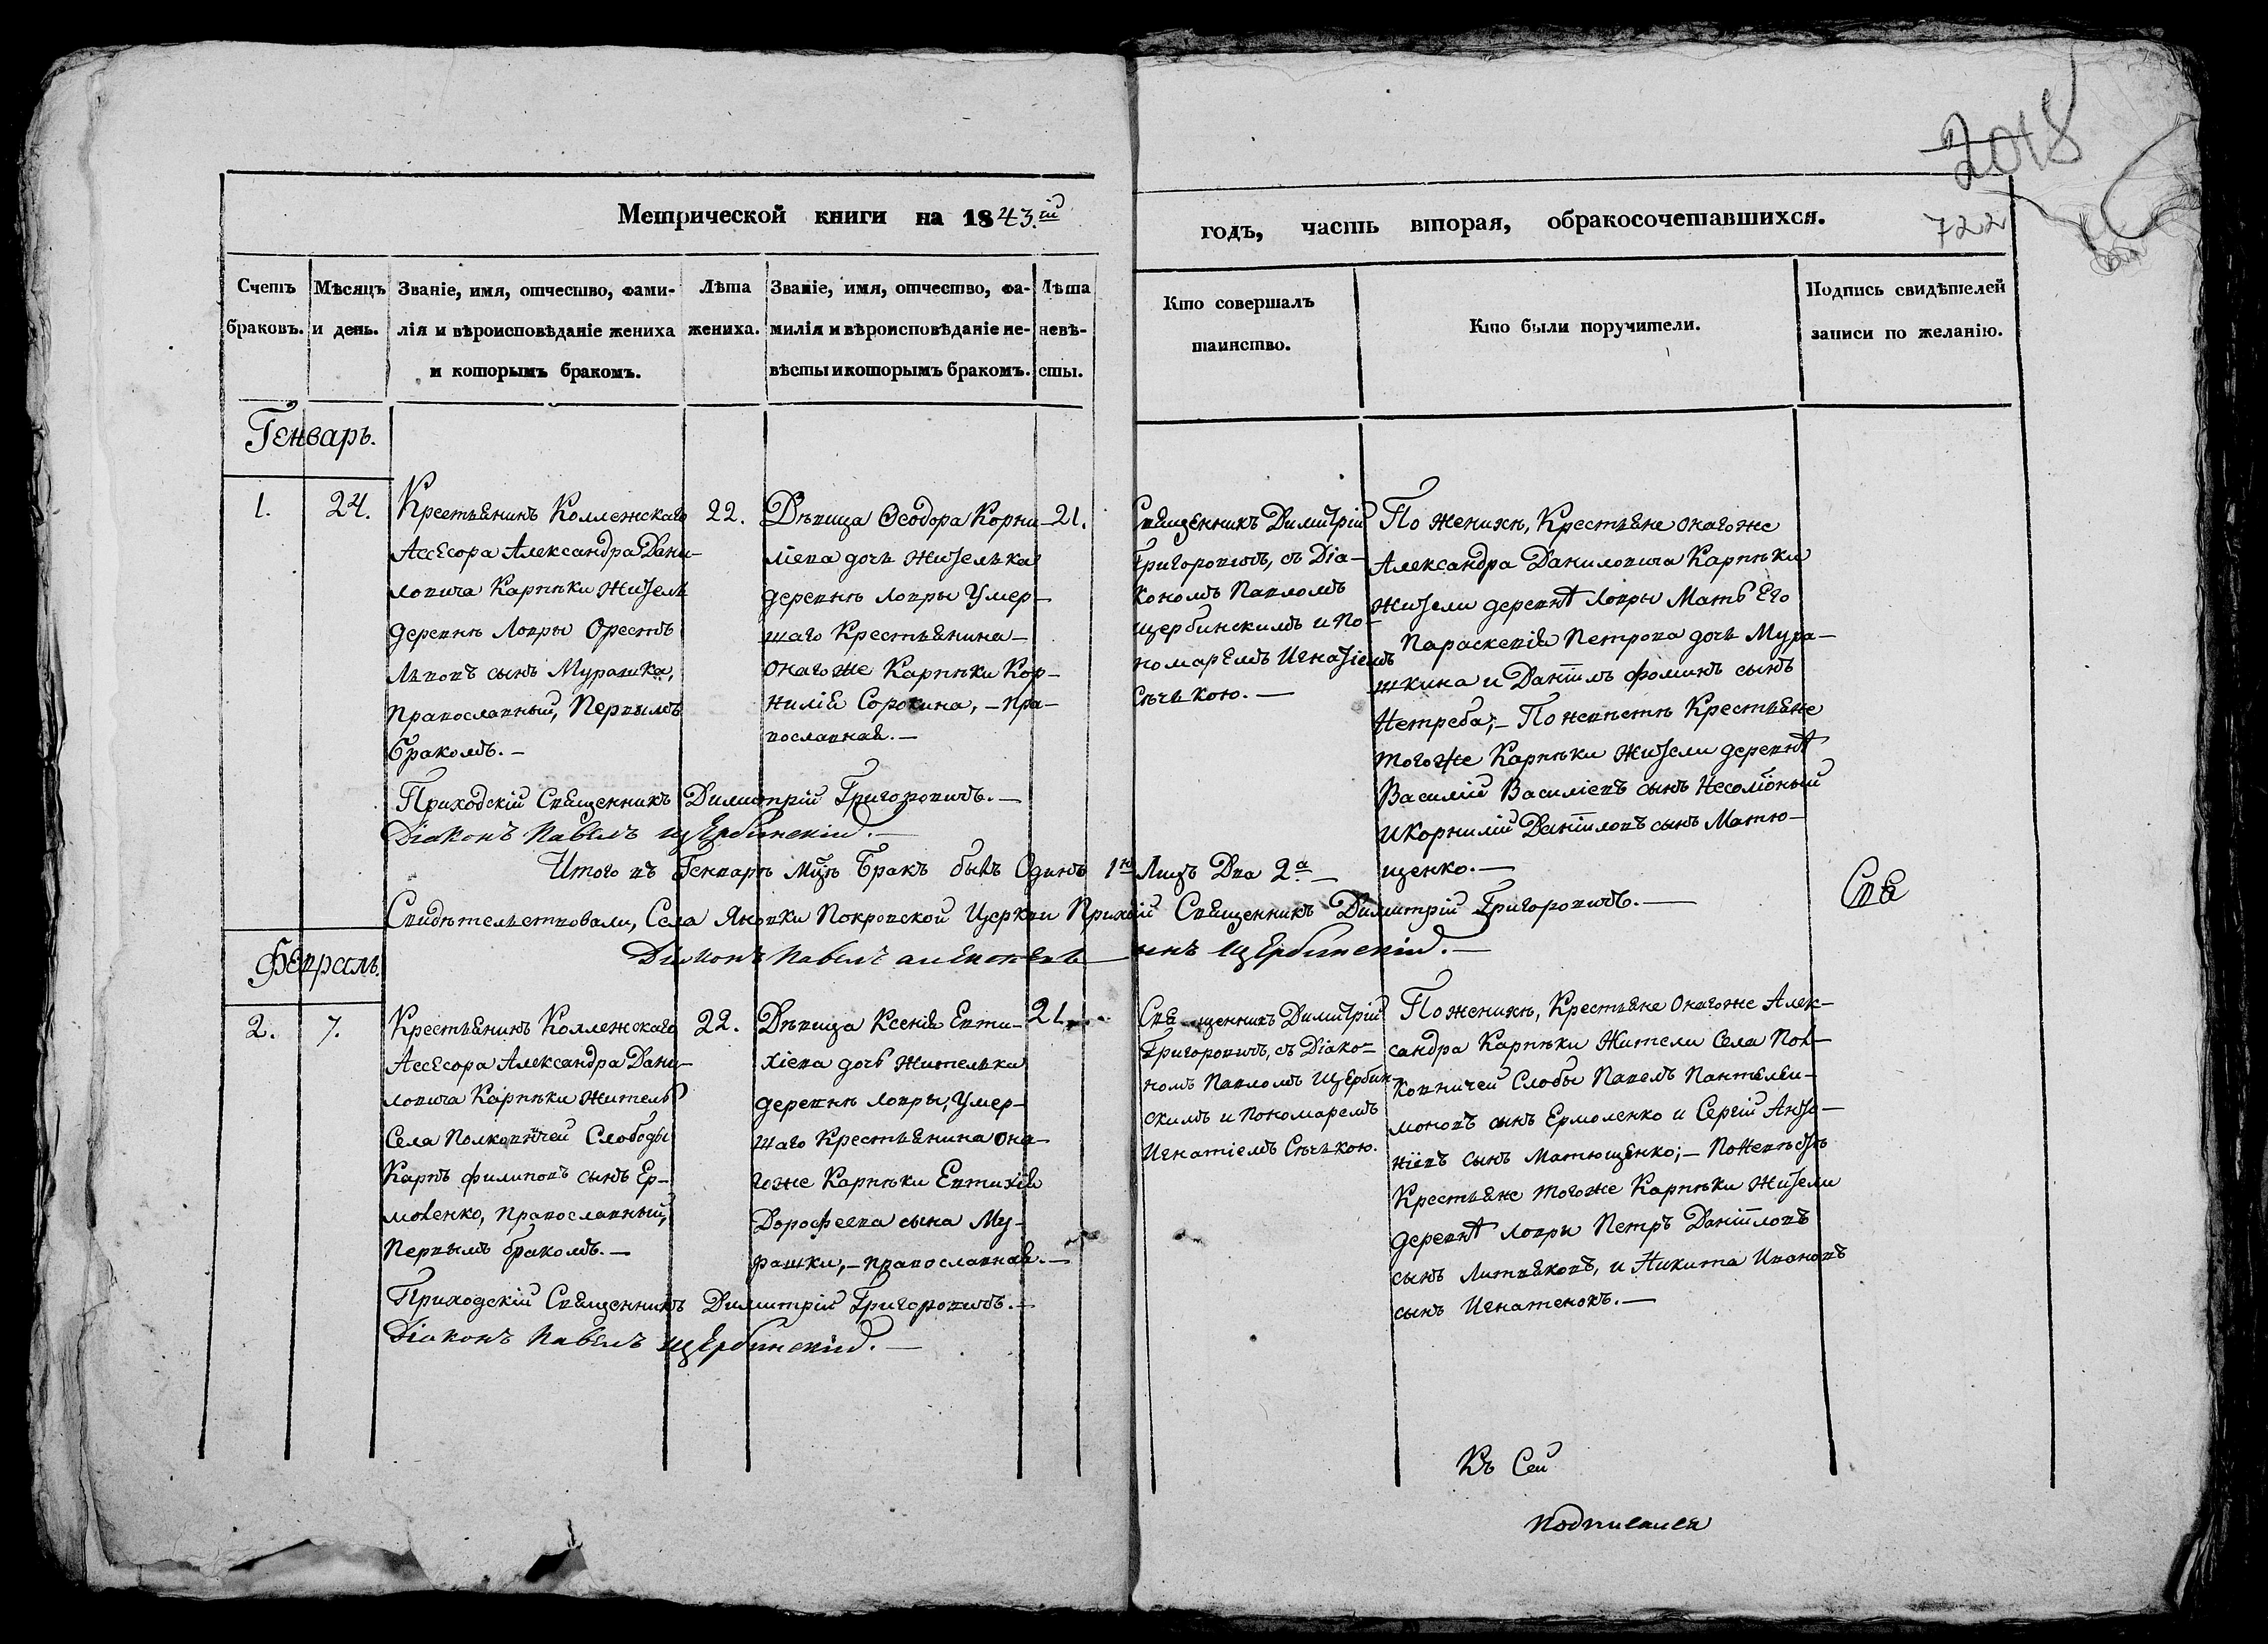 2018
722
Метрической книги на 1843.й
годъ, часть вторая, обракосочетавшихся.
Счетъ
браковъ.
Мѣсяцъ
и день.
Званіе, имя, отчество, фами-
лія и вѣроисповѣданіе жениха
и которымъ бракомъ.
Лѣта
жениха.
Званіе, имя, отчество, фа-
милія и вѣроисповѣданіе не-
вѣсты и которымъ бракомъ.
Лѣта
невѣ-
сты.
Кто совершалъ
таинство.
Кто были поручители.
Подпись свидѣтелей
записи по желанію.
Генварь.
1.
24.
Крестьянинъ Коллежскаго
Ассесора Александра Дани-
ловича Карпѣки житель
деревнѣ Ловры Орестъ
Львовъ сынъ Мурашка,
православный, Первымъ
бракомъ.-
22.
Дѣвица Ѳеодора Корни-
ліева дочь жителька
деревнѣ Ловры Умер-
шаго Крестьянина-
онагоже Карпѣки Кор-
нилія Сорокина,- пра-
вославная.-
21.
Священникъ Димитрій
Григоровичъ, съ Діа-
кономъ Павломъ
Щербинскимъ и По-
номаремъ Игнатіемъ
Сѣчькою.-
По женихѣ, Крестьяне онагоже
Александра Даниловича Карпѣки
жители деревнѣ Ловры Мать Его
Параскевія Петрова дочь Мура-
шкина и Даніилъ Фоминъ сынъ
Нетреба;- По невѣстѣ Крестьяне
тогожде Карпѣки жители деревнѣ
Василій Василіевъ сынъ Несоліоный
и Корнилій Даніиловъ сынъ Матю-
щенко.-
Приходскій Священникъ Димитрій Григоровичъ.-
Діаконъ Павелъ Щербинскій.-
Итого въ Генварѣ мцѣ Бракъ былъ Одинъ 1й Лицъ Два 2а.-
Свидѣтельствовали, Села Яновки Покровской Церкви Прихскій Священникъ Димитрій Григоровичъ.-
Свя
Діаконъ Павелъ Щербинскій.-
Февраль.
2.
7.
Крестьянинъ Коллежскаго
Ассесора Александра Дани-
ловича Карпѣки житель
Села Полковничей Слободы
Карпъ Филиповъ сынъ Ер-
моленко, православный,
Первымъ бракомъ.-
22.
Дѣвица Ксенія Евти-
хіева дочь жителька
деревнѣ Ловры, Умер-
шаго Крестьянина она-
гоже Карпѣки Евтихія
Дорофеева сына Му-
рашки,- православная.-
21.
Священникъ Димитрій
Григоровичъ, съ Діако-
номъ Павломъ Щербин-
скимъ и Пономаремъ
Игнатіемъ Сѣчькою.
По женихѣ, Крестьяне Онагоже Алек-
сандра Карпѣки Жители Села Пол-
ковничей Слобы Павелъ Пантелеи-
моновъ сынъ Ермоленко и Сергій Анто-
ніевъ сынъ Матющенко;- По невѣстѣ
Крестьяне тогоже Карпѣки жители
деревнѣ Ловры Петръ Даніиловъ
сынъ Литвяковъ, и Никита Ивановъ
сынъ Игнатенокъ.-
Приходскій Священникъ Димитрій Григоровичъ.-
Діаконъ Павелъ Щербинскій.-
Къ Сей
подписался